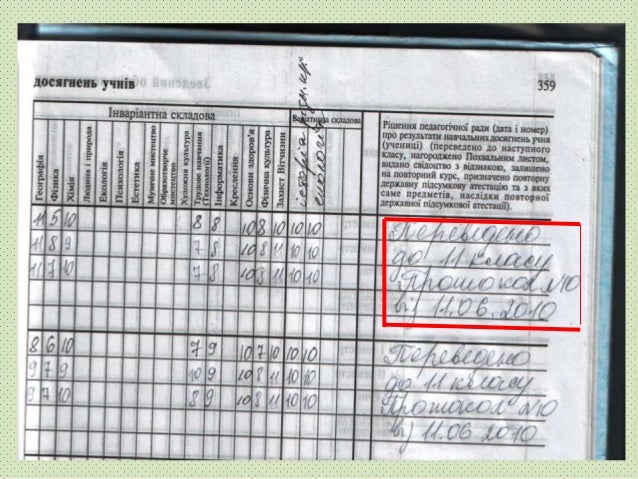 досягнень учнів
359
Інваріантна складова
Варіативна складова
Географія
Фізика
Хімія
Людина і природа
Екологія
Психологія
Естетика
Музичне мистецтво
Образотворче мистецтво
Художня культура
Трудове навчання (Технології)
Інформатика
Креслення
Основи здоров'я
Фізична культура
Захист Вітчизни
історія
екологія
Рішення педагогічної ради (дата і номер)
про результати навчальних досягнень учня
(учениці) (переведено до наступного
класу, нагороджено Похвальним листом,
видано свідоцтво з відзнакою, залишено
на повторний курс, призначено повторну
державну підсумкову атестацію та з яких
саме предметів, наслідки повторної
державної підсумкової атестації).
11 5 10 8 8 10 8 10 10 10
Переведено
11 8 9 7 8 10 8 11 10 10
до 11 класу
11 7 10 7 8 10 8 11 10 10
Протокол №10
від 11.06.2010
8 6 10 7 9 10 7 10 10 10
Переведено
9 7 9 10 9 10 8 11 10 10
до 11 класу
9 7 10 8 9 10 8 11 10 10
Протокол №10
від 11.06 2010